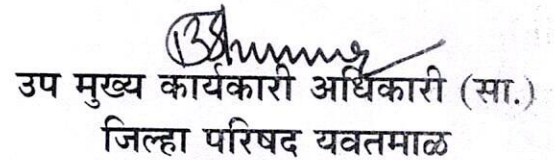 उप मुख्य कार्यकारी अधिकारी (सा.)
जिल्हा परिषद यवतमाळ